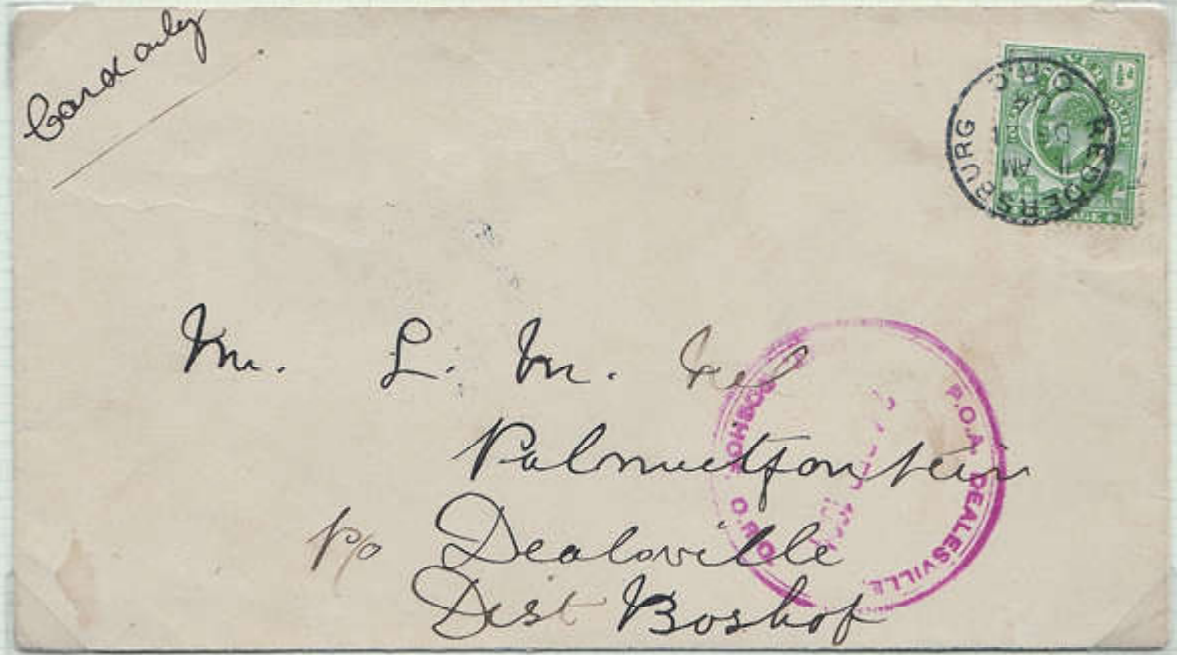 Card only
REDDERSBURG
O.R.C.
AM
Mr. L. M. Nel
Palmietfontein
P/o Dealsville
Dist Boshof
P.O.A. DEALESVILLE
BOSHOF. O.R.C.